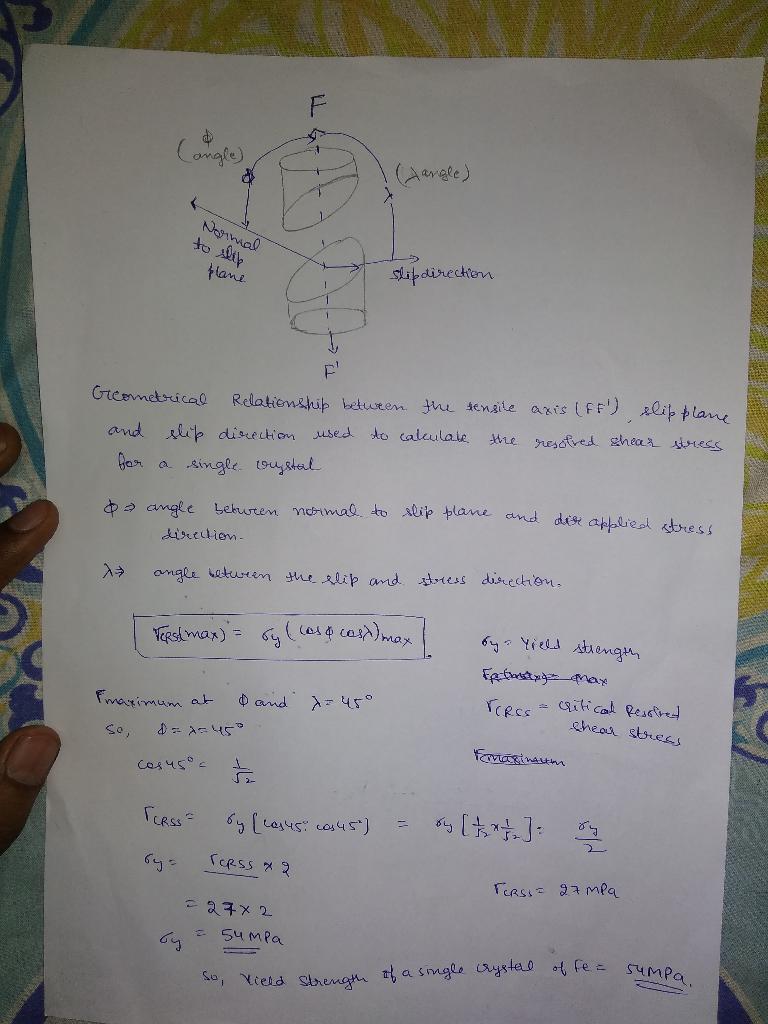 F
(ϕ angle)
(λ angle)
ϕ
λ
Normal
to slip
plane
slip direction
F'
Geometrical Relationship between the tensile axis (FF'), slip plane
and slip direction used to calculate the resolved shear stress
for a single crystal
ϕ ⇒ angle between normal to slip plane and dir applied stress
direction.
λ ⇒ angle between the slip and stress direction.
τCRSS(max) = σy (cosϕ cosλ)max
σy = Yield strength
τmaximum at ϕ and λ = 45°
τCRSS = critical Resolved
shear stress
so, ϕ = λ = 45°
cos45° = 1/√2
τCRSS = σy [cos45° cos45°] = σy [1/√2 × 1/√2] = σy/2
σy = τCRSS × 2
τCRSS = 27 MPa
= 27 × 2
σy = 54 MPa
so, Yield strength of a single crystal of Fe = 54 MPa.